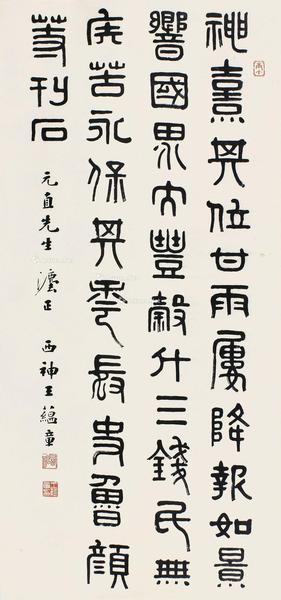 神熹其位甘雨屢降報如景
響國界大豐穀斗三錢民無
疾苦永保其年長史魯顏
等刊石
元直先生灋正 西神王蘊章